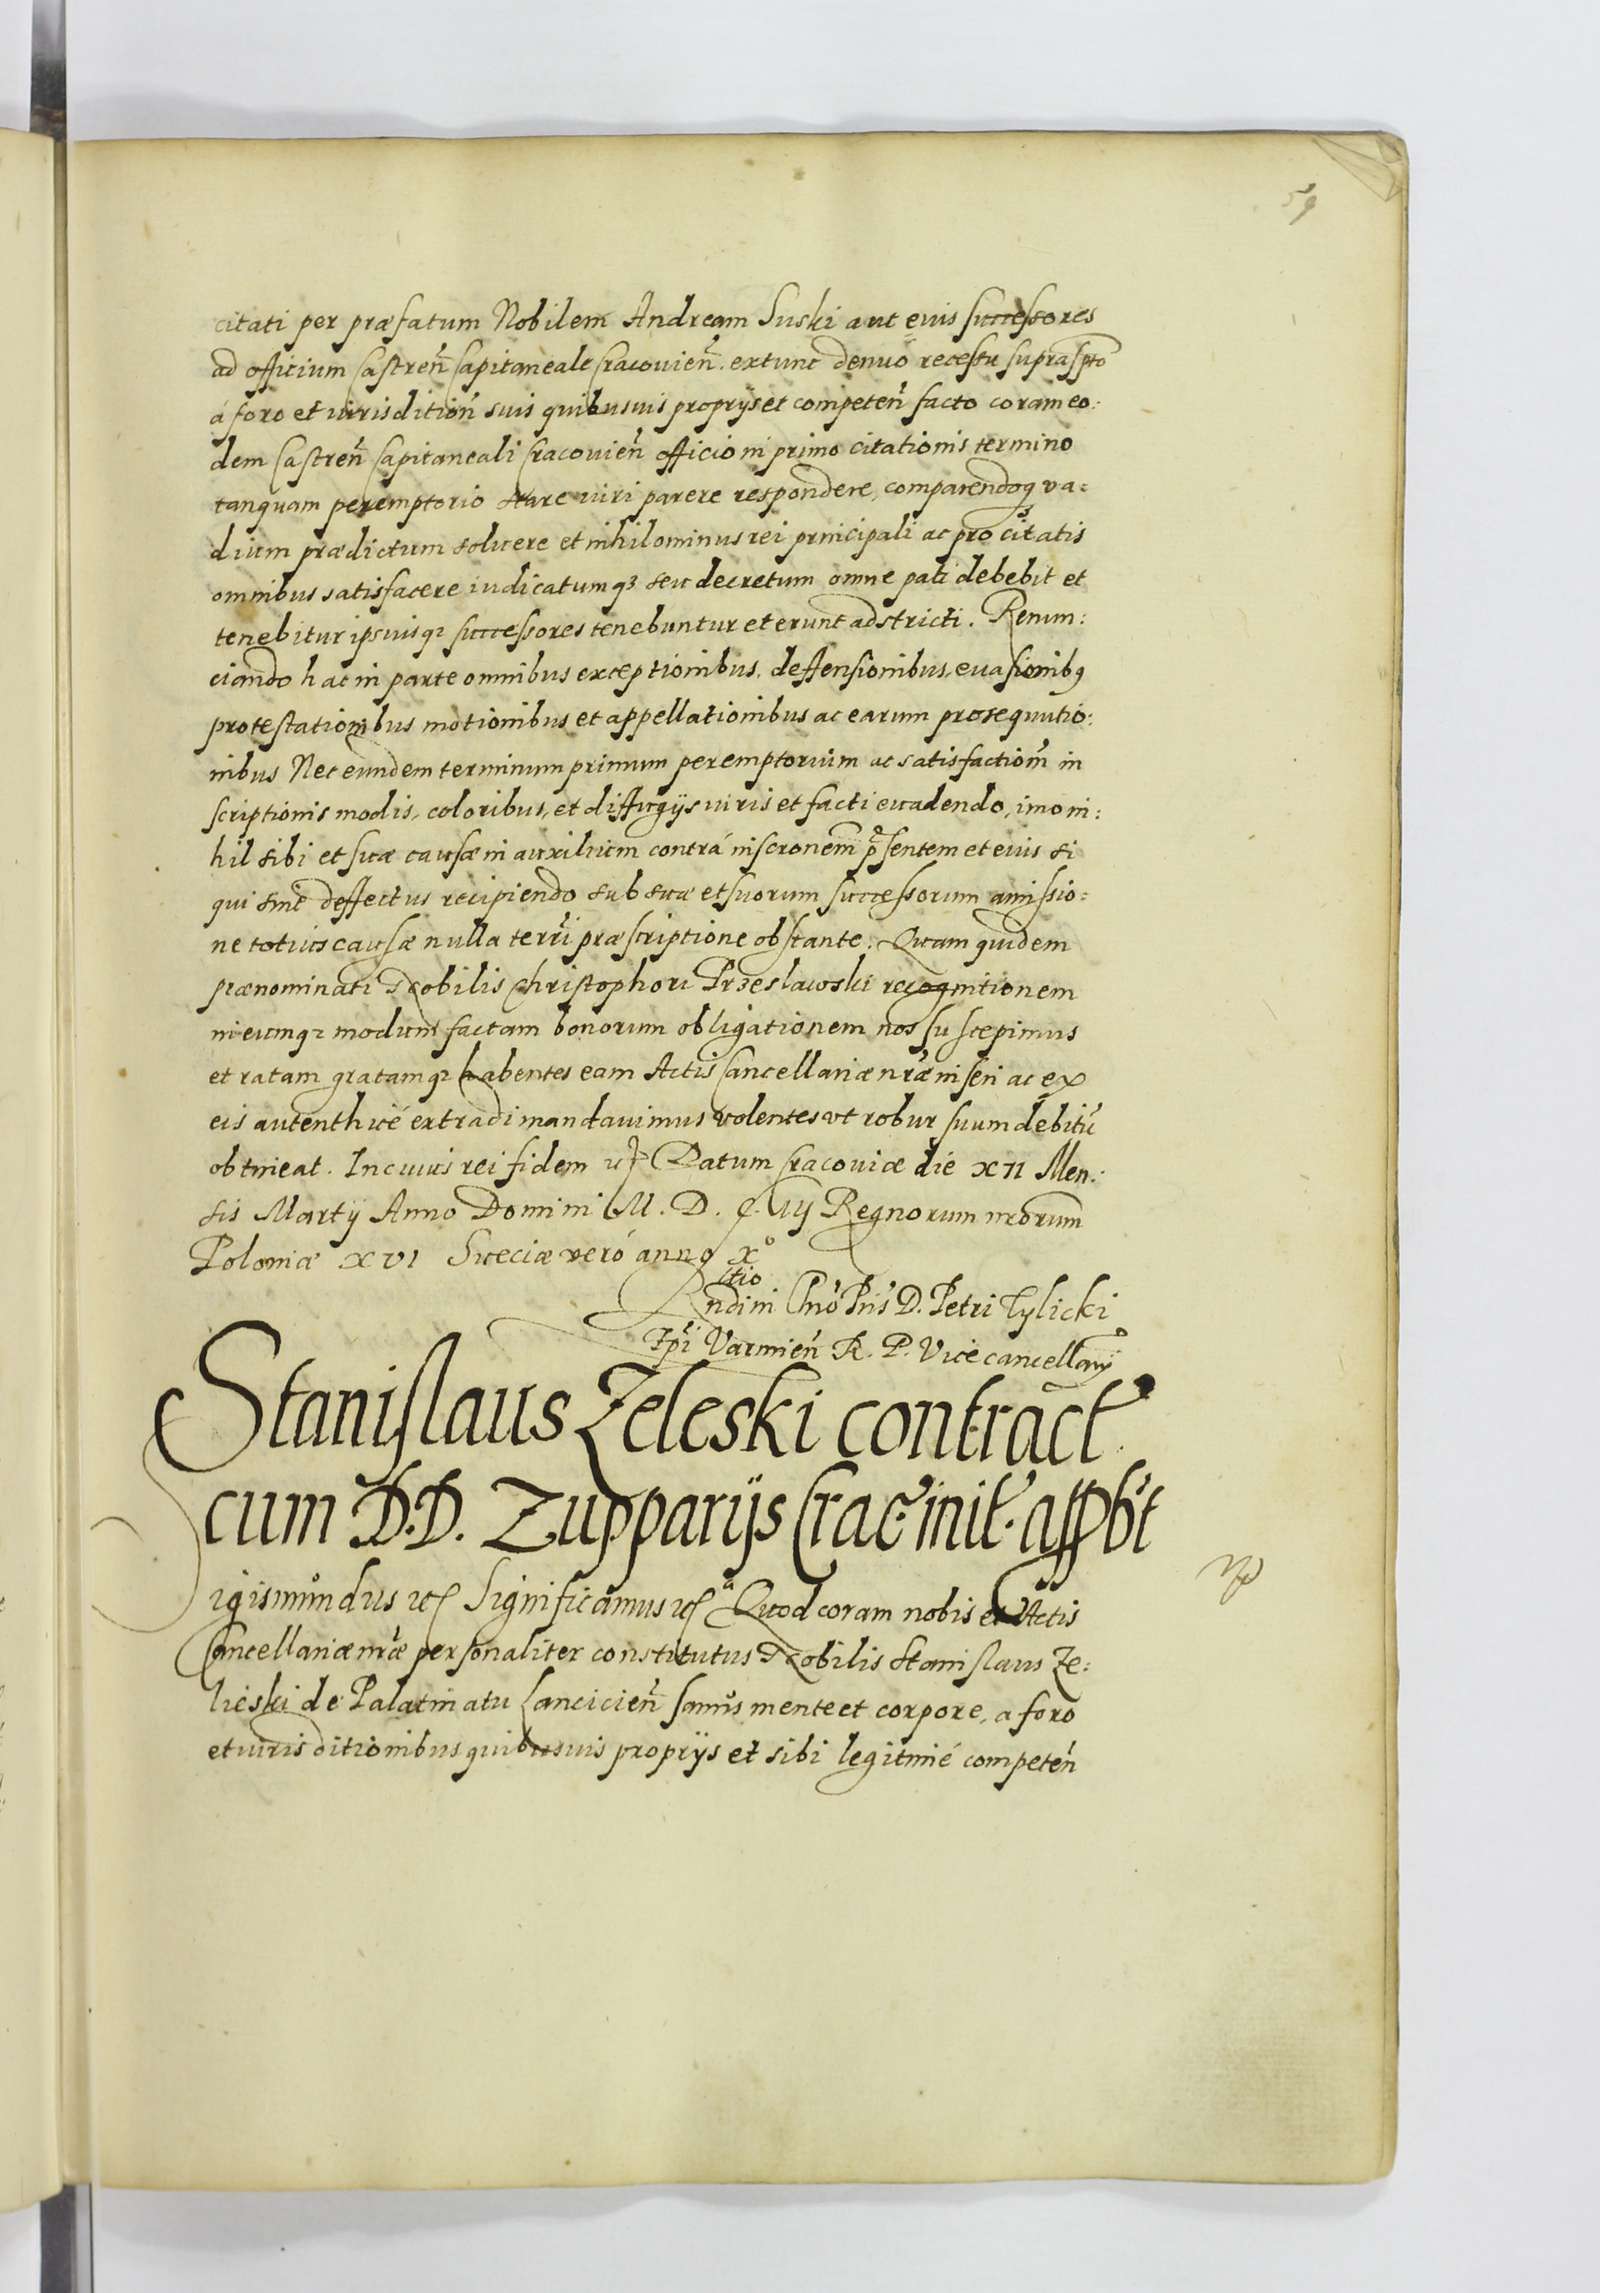 59
citati per præfatum Nobilem Andream Suski aut eius successores
ad officium Castreñ Capitaneale Cracouieñ. extunc denuó recessu suprascpto
á foro et iurisditioñ suis quibusuis proprijs et competeñ facto coram eo:
dem Castreñ Capitaneali Cracouieñ officio in primo citationis termino
tanquam peremptorio stare iuri parere respondere, comparendoq va:
dium prædictum soluere et nihilominus rei principali ac pro citatis
omnibus satisfacere iudicatumq3 seu decretum omne pati debebit et
tenebitur ipsiusq3 successores tenebuntur et erunt adstricti. Renun:
ciando hac in parte omnibus exceptionibus, deffensionibus, euasionibq
protestationibus motionibus et appellationibus ac earum prosequutio:
nibus Nec eundem terminum primum peremptorium ac satisfactioñ in
scriptionis modis, coloribus, et diffugijs iuris et facti euadendo, imo ni:
hil sibi et suæ causæ in auxilium contrá inscronem psentem et eius si
qui sint deffectus recipiendo sub suæ et suorum successorum amissio:
ne totius causæ nulla terri præscriptione obstante. Quam quidem
prænominati Nobilis Christophori Przeslawski recognitionem
in eumq3 modum factam bonorum obligationem nos suscepimus
et ratam gratamq3 habentes eam Actis Cancellariæ nræ inseri ac ex
eis autenthicé extradi mandauimus volentes vt robur suum debitū
obtineat. In cuius rei fidem Datum Cracouiæ die XII Men:
sis Martij Anno Domini M. D. C. IIIj Regnorum nrorum
Poloniæ XVI Sueciæ veró anno Xº
Rndini Chro Pris D. Petri Tylicki
Epi Varmieñ R. P. Vicecancellarij
Stanislaus Zeleski contract
cum D.D. Zupparijs Crac init. appbt
igismundus Significamus Quod coram nobis et Actis
Cancellariæ nræ personaliter constitutus Nobilis Stanislaus Ze:
lieski de Palatinatu Lancicieñ sanus mente et corpore, a foro
et iurisditionibus quibusuis proprijs et sibi legitimé competeñ